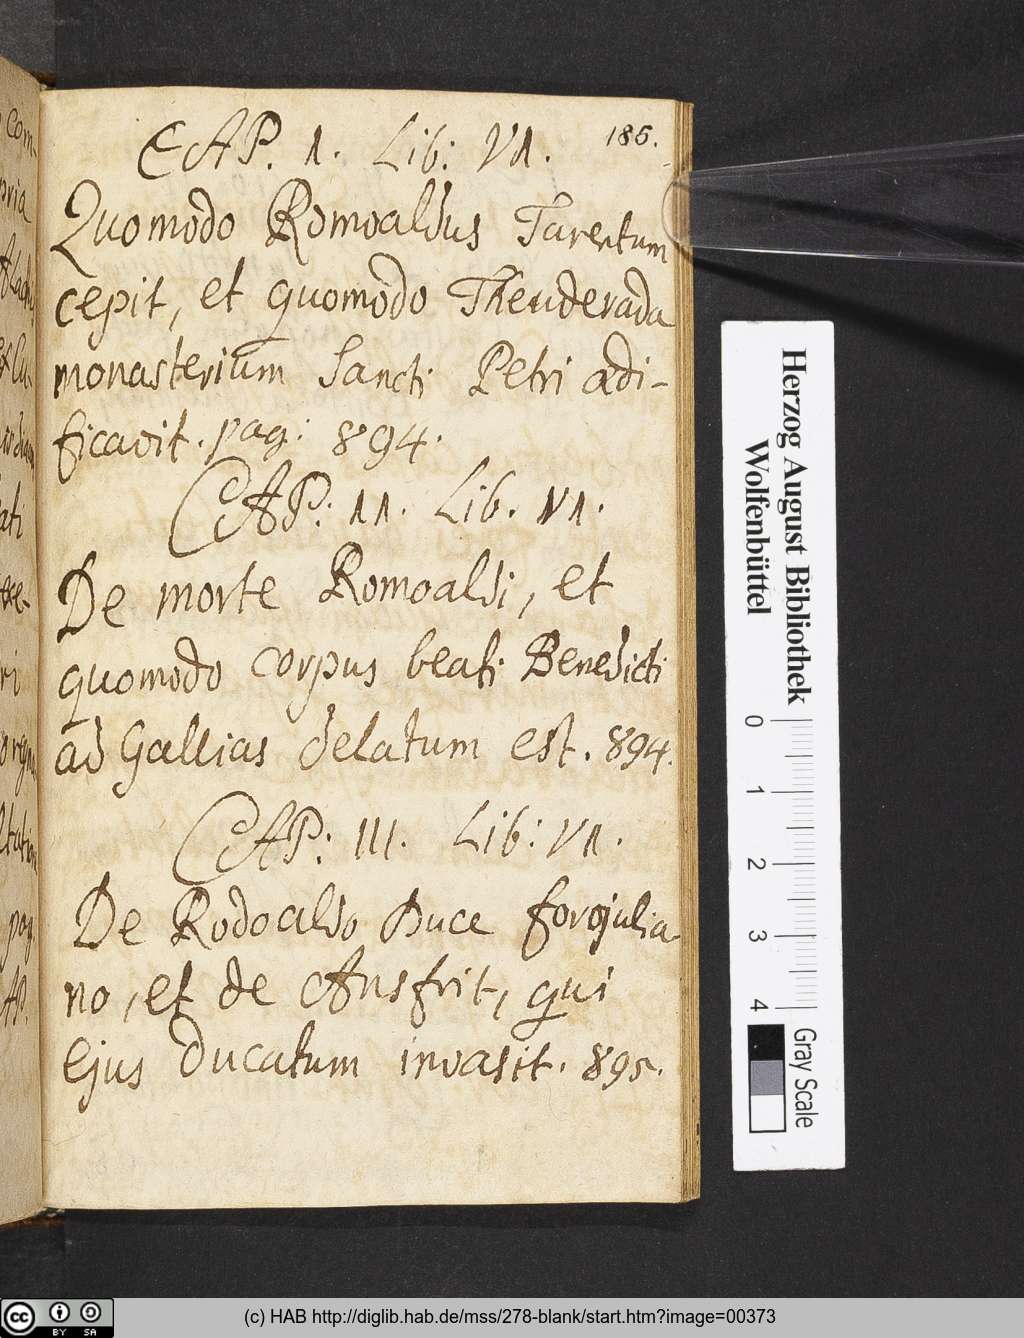 185.
CAP. 1. Lib: VI.
Quomodo Romoaldus Tarentum
cepit, et quomodo Theuderada
monasterium Sancti Petri ædi-
ficavit. pag: 894.
CAP: 11. Lib. VI.
De morte Romoaldi, et
quomodo corpus beati Benedicti
ad Gallias delatum est. 894.
CAP: III. Lib: VI.
De Rodoaldo Duce forojulia-
no, et de Ansfrit, qui
ejus ducatum invasit. 895.
Herzog August Bibliothek
Wolfenbüttel
0 1 2 3 4
Gray Scale
(c) HAB http://diglib.hab.de/mss/278-blank/start.htm?image=00373
cc BY SA